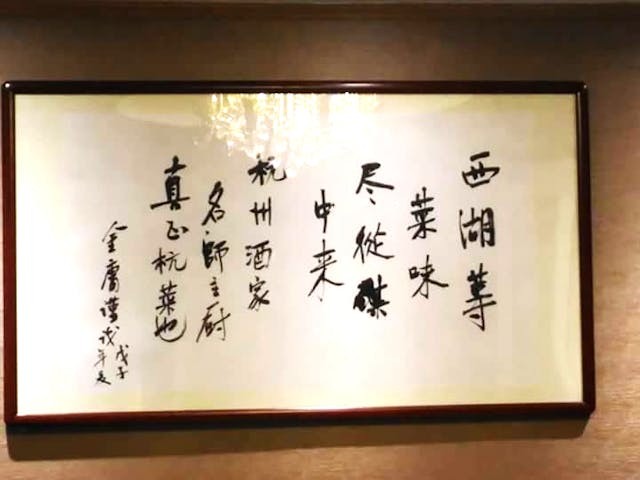 西湖等
菜味
尽從碟
中来
杭州酒家
名師主厨
真正杭菜也
金庸謹
戊子
年夏